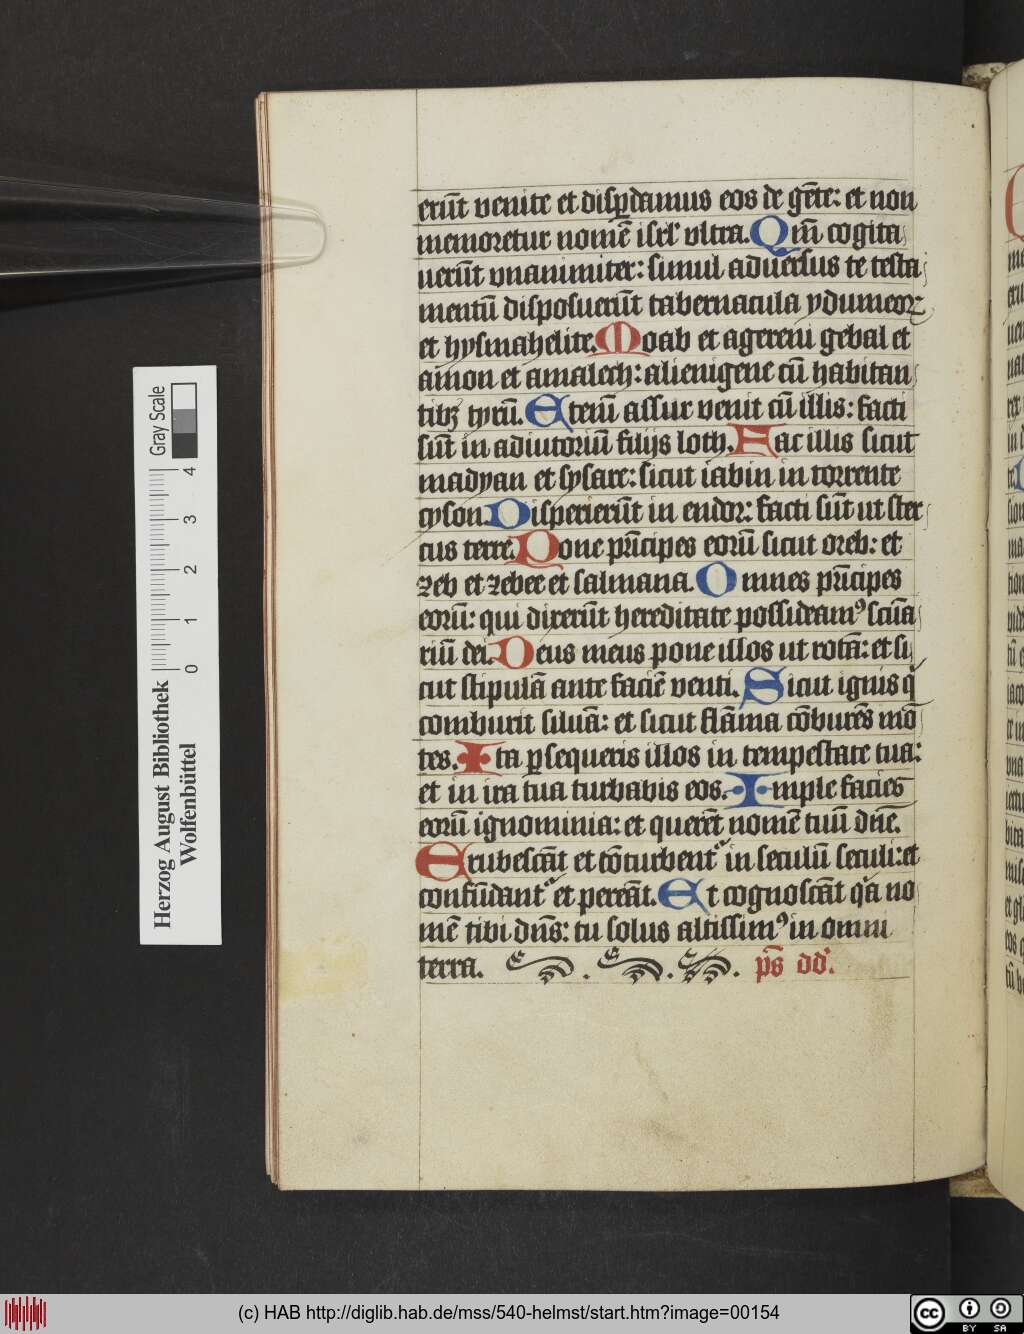 erūt venite et disꝑdamus eos de gēte: et non
memoretur nomē isrl' vltra. Qm̄ cogita
uerūt vnanimiter: simul aduersus te testa
mentū disposuerūt tabernacula ydumeoꝝ
et hysmahelite. Moab et agereni gebal et
amon et amalech: alienigene cū habitan
tibꝫ tyrū. Etenī assur venit cū illis: facti
sūt in adiutoriū filijs loth. Fac illis sicut
madyan et sysare: sicut iabin in torrente
cyson. Disperierūt in endor: facti sūt ut ster
cus terre. Pone prīcipes eorū sicut oreb: et
zeb et zebee et salmana. Omnes prīcipes
eorū: qui dixerūt hereditate possideamꝰ scūa
riū dei. Deus meus pone illos ut rotā: et si
cut stipulā ante faciē venti. Sicut ignis q̄
comburit siluā: et sicut flāma cōburēs mō
tes. Ita ꝑsequeris illos in tempestate tua:
et in ira tua turbabis eos. Imple facies
eorū ignominia: et querēt nomē tuū dn̄e.
Erubescāt et cōturbent᷑ in seculū seculi: et
confūdant᷑ et pereāt. Et cognoscāt qͣa no
mē tibi dn̄s: tu solus altissimꝰ in omni
terra. p̄s dd'.
Herzog August Bibliothek
Wolfenbüttel
0 1 2 3 4
Gray Scale
(c) HAB http://diglib.hab.de/mss/540-helmst/start.htm?image=00154
cc BY SA